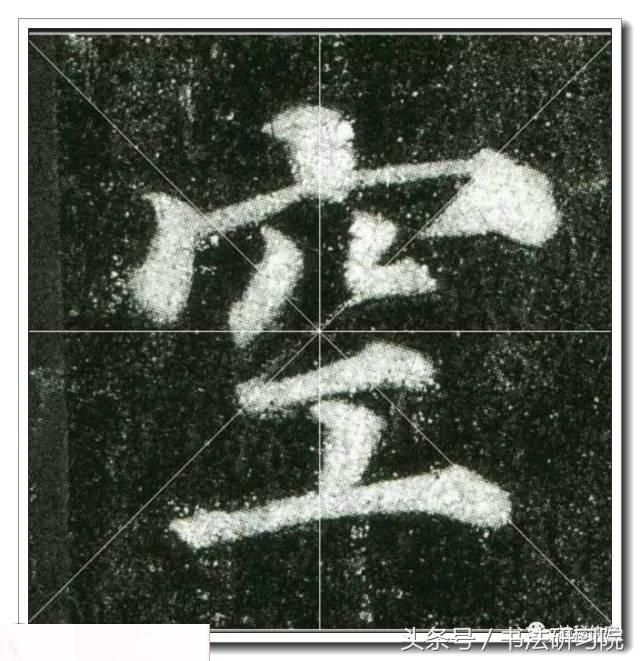 空
头条号 / 书法研习院